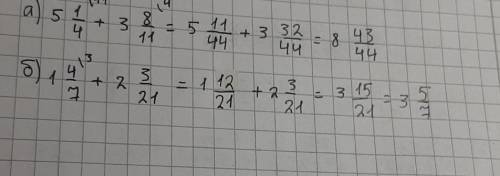 а) 5 1/4 \11 + 3 8/11 \4 = 5 11/44 + 3 32/44 = 8 43/44
б) 1 4/7 \3 + 2 3/21 = 1 12/21 + 2 3/21 = 3 15/21 = 3 5/7